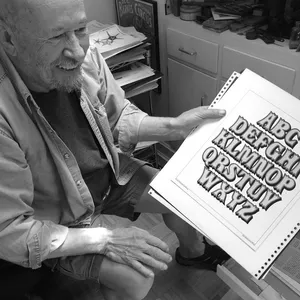 ABC
DEFGHI
KLMNOP
QRSTUV
WXYZ